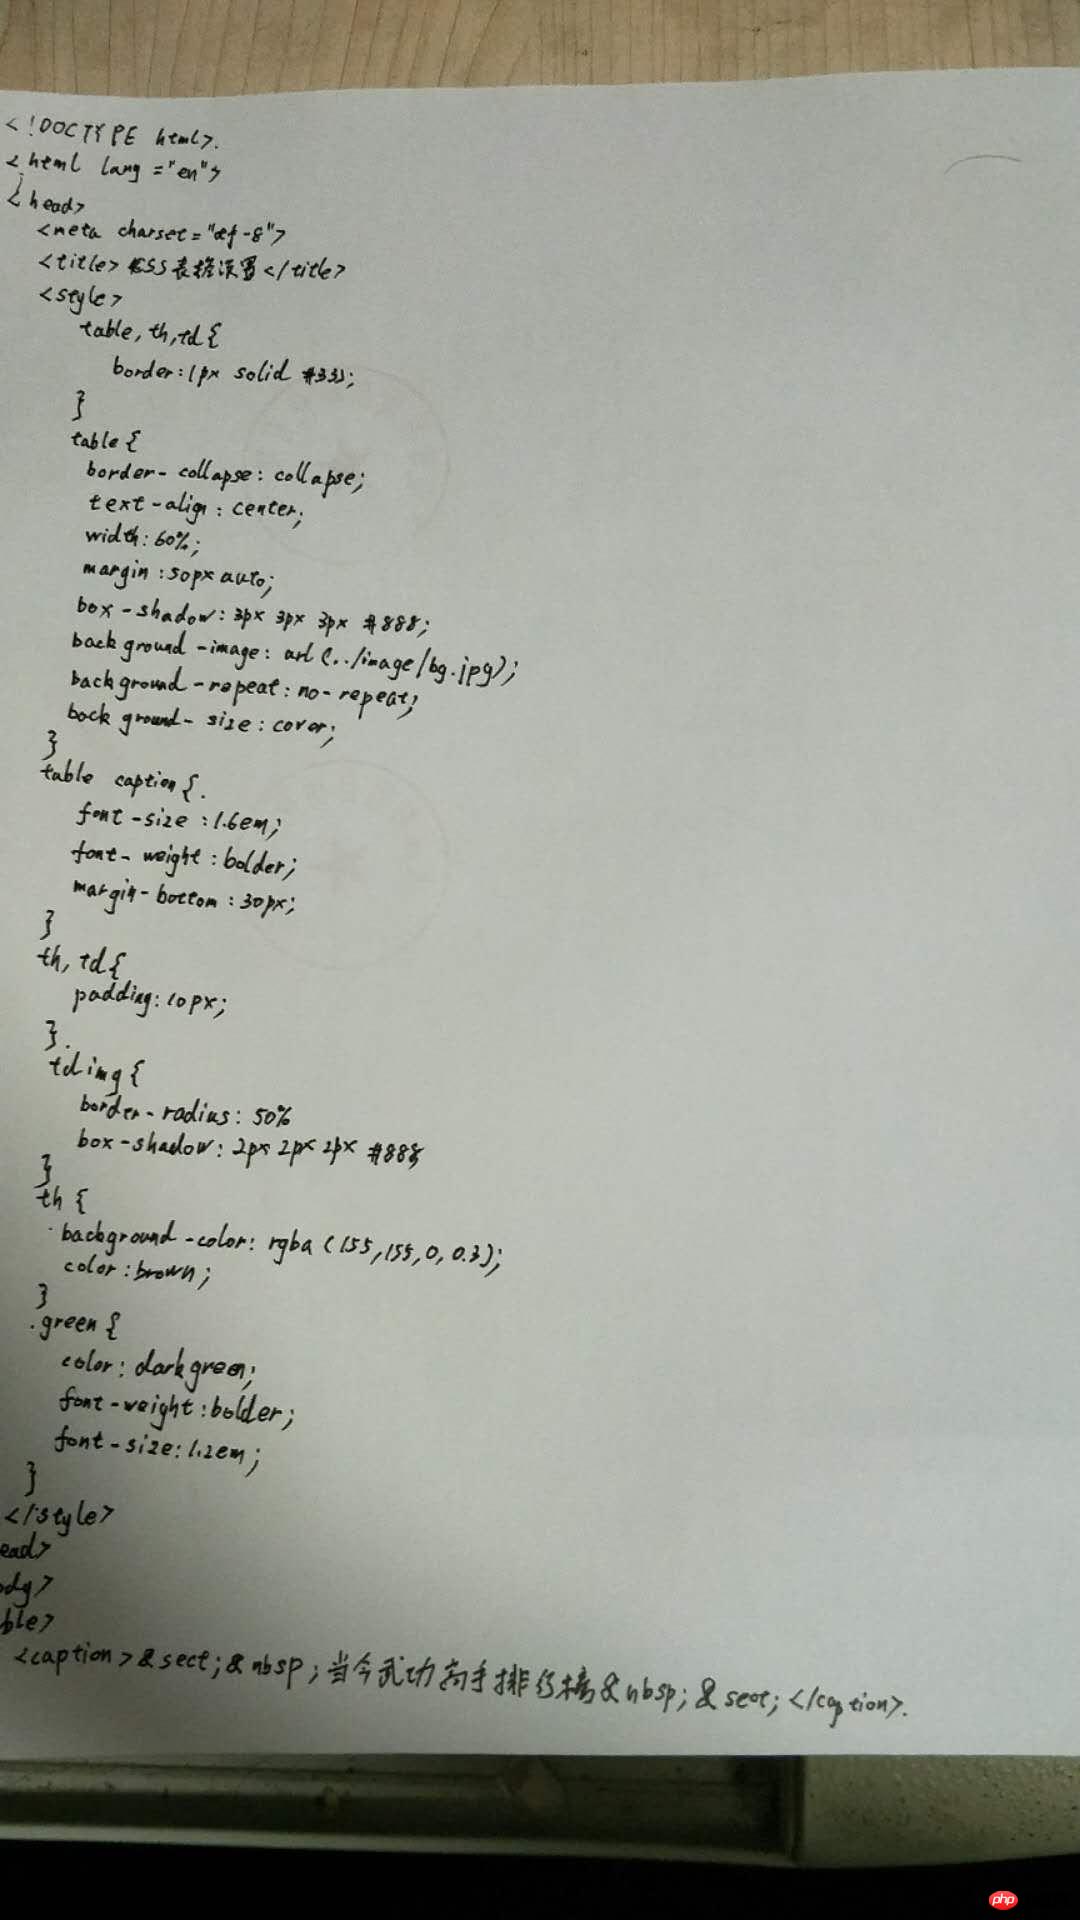 <!DOCTYPE html>.
<html lang="en">
<head>
<meta charset="utf-8">
<title>CSS表格设置</title>
<style>
table, th, td {
border: 1px solid #333;
}
table {
border-collapse: collapse;
text-align: center;
width: 60%;
margin: 50px auto;
box-shadow: 3px 3px 3px #888;
background-image: url(../image/bg.jpg);
background-repeat: no-repeat;
background-size: cover;
}
table caption {.
font-size: 1.6em;
font-weight: bolder;
margin-bottom: 30px;
}
th, td {
padding: 10px;
}.
td img {
border-radius: 50%
box-shadow: 2px 2px 2px #888;
}
th {
background-color: rgba(155,155,0,0.3);
color: brown;
}
.green {
color: darkgreen;
font-weight: bolder;
font-size: 1.2em;
}
</style>
ead>
ody>
ble>
<caption>&sect;&nbsp;当今武功高手排行榜&nbsp;&sect;</caption>.
php